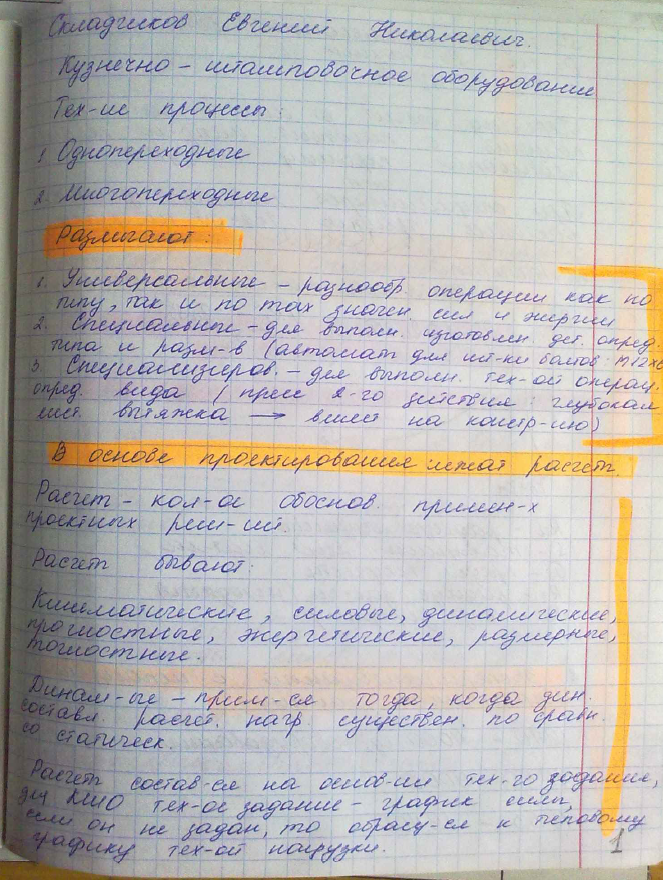 Складчиков Евгений Николаевич.
Кузнечно – штамповочное оборудование
Тех-ие процессы:
1 Однопереходные
2. Многопереходные
Различают:
1. Универсальные – разнообр. операции как по
типу, так и по тах значен. сил и энергии
2. Специальные – для выполн. изготовлен. дет. опред.
типа и разм-в (автомат для шт-ки болтов М12х6
3. Специализиров. – для выполн. тех-ой операц.
опред. вида (пресс 2-го действия: глубокая
лист. вытяжка → влият на констр-ию)
В основе проектирования лежат расчеты.
Расчет – кол-ое обоснов. примен-х
проектных реш-ий.
Расчеты бывают:
Кинематические, силовые, динамические,
прочностные, энергетические, размерные,
точностные.
Динам-ые – прим-ся тогда, когда дин.
составл. расчет. нагр. существен. по сравн.
со статическ.
Расчеты состав-ся на основ-ии тех-го задания,
для КШО тех-ое задание – график силы,
если он не задан, то обращ-ся к типовому
графику тех-ой нагрузки.
1